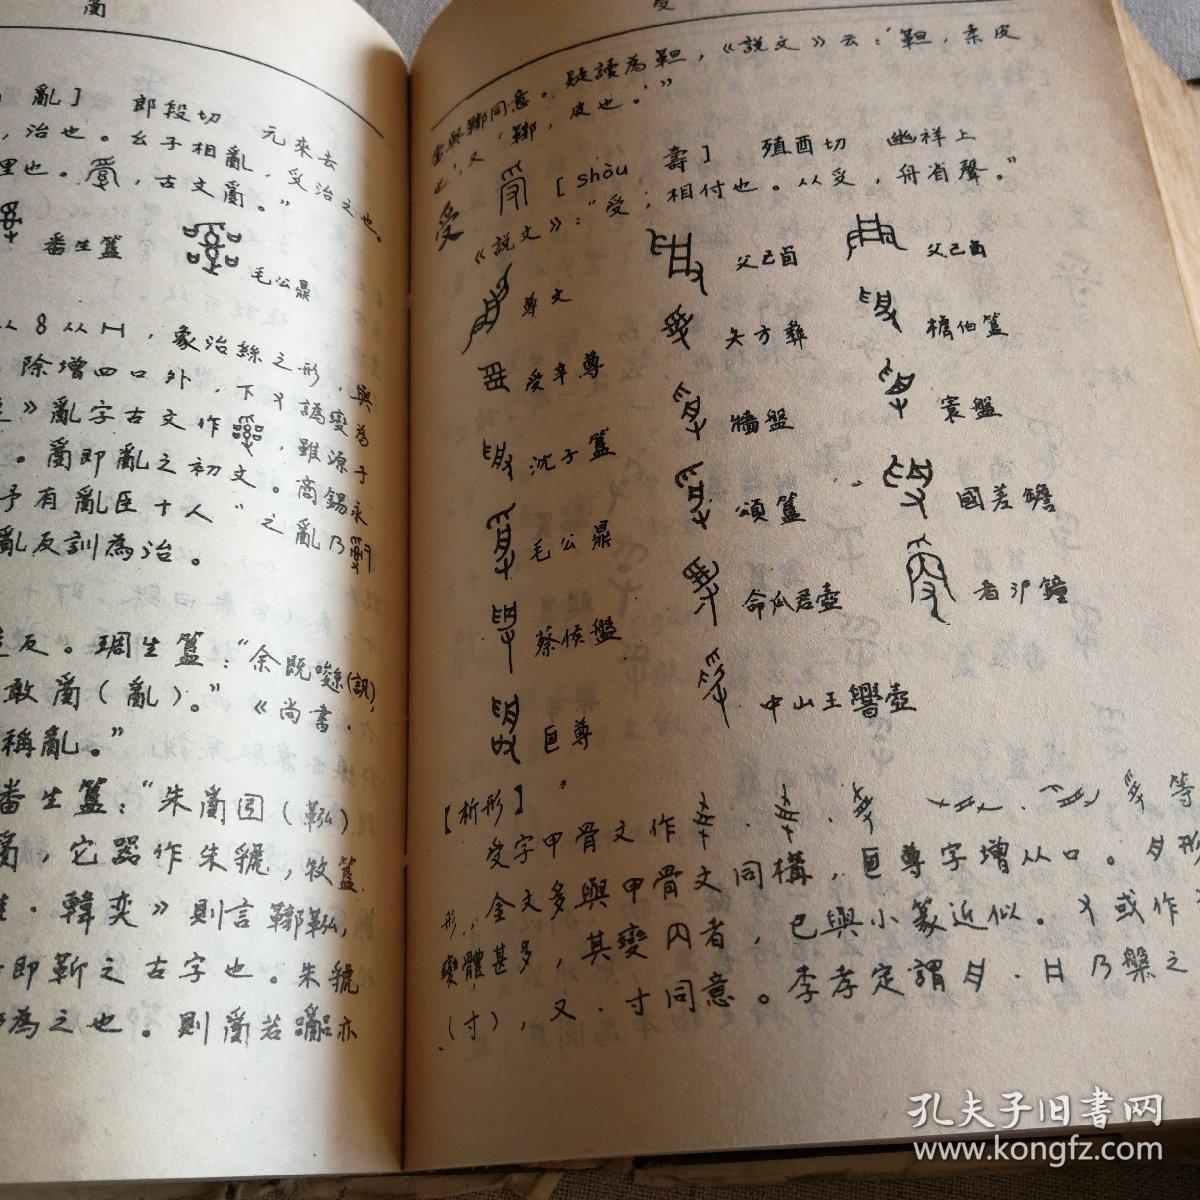 𤔔
亂] 郎段切 元來去
，治也。幺子相亂，𠬪治之也。
理也。，古文𤔔。”
番生簋 毛公鼎
从8从H，象治絲之形，與
除增四口外，下又譌變為
》亂字古文作，雖源于
。𤔔即亂之初文。商錫永
予有亂臣十人”之亂乃
亂反訓為治。
反。琱生簋：“余既（訊）
敢𤔔（亂）。”《尚書·
稱亂。”
番生簋：“朱𤔔（鞃）
𤔔，它器作朱虢，牧簋
·韓奕》則言鞹鞃，
即靳之古字也。朱虢
為之也。則𤔔若亦
受
當與鞹同意。疑讀為靼，《說文》云：‘靼，柔皮
也；’又‘鞹，皮也。’”
受 [shòu 壽] 殖酉切 幽禪上
《說文》：“受，相付也。从𠬪，舟省聲。”
尊文 父己卣 父己卣
受辛尊 矢方彝 楷伯簋
沈子簋 牆盤 寰盤
毛公鼎 頌簋 國差𦉜
蔡侯盤 命瓜君壺 者㲋鐘
尊 中山王𰯼壺
[析形]
受字甲骨文作 · · · 等
形，金文多與甲骨文同構，尊字增从口。形
變體甚多，其變內者，已與小篆近似。又或作
（寸），又·寸同意。李孝定謂 · 乃槃之
孔夫子旧書网
www.kongfz.com